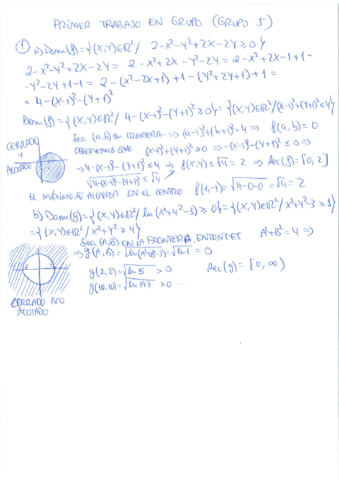 PRIMER TRABAJO EN GRUPO (GRUPO 5)
① a) Dom(f)={(x,y)∈ℝ²/ 2-x²-y²+2x-2y≥0}
2-x²-y²+2x-2y = 2-x²+2x-y²-2y = 2-x²+2x-1+1-
-y²-2y+1-1 = 2-(x²-2x+1)+1-(y²+2y+1)+1 =
= 4-(x-1)²-(y+1)²
Dom(f)={(x,y)∈ℝ²/ 4-(x-1)²-(y+1)²≥0}={(x,y)∈ℝ²/(x-1)²+(y+1)²≤4}
CERRADO Y ACOTADO
Sea (a,b) en FRONTERA ⇒ (a-1)²+(b+1)²=4 ⇒ f(a,b)=0
OBSERVEMOS QUE (x-1)²+(y+1)²≥0 ⇒ -(x-1)²-(y+1)²≤0 ⇒
⇒ 4-(x-1)²-(y+1)²≤4 ⇒ f(x,y)≤√4=2 ⇒ Rec(f)=[0,2]
√4-(x-1)²-(y+1)² ≤√4
EL MÁXIMO SE ALCANZA EN EL CENTRO f(1,-1)=√4-0-0=√4=2
b) Dom(g)={(x,y)∈ℝ²/ ln(x²+y²-3)≥0}={(x,y)∈ℝ²/x²+y²-3≥1}
={(x,y)∈ℝ²/ x²+y²≥4}
Sea (A,B) en LA FRONTERA, ENTONCES A²+B²=4 ⇒
⇒ g(A,B)=√ln(A²+B²-3)=√ln1=0
g(2,2)=√ln 5 >0
Rec(g)=[0,∞)
g(10,10)=√ln 197 >0 ...
CERRADO NO ACOTADO